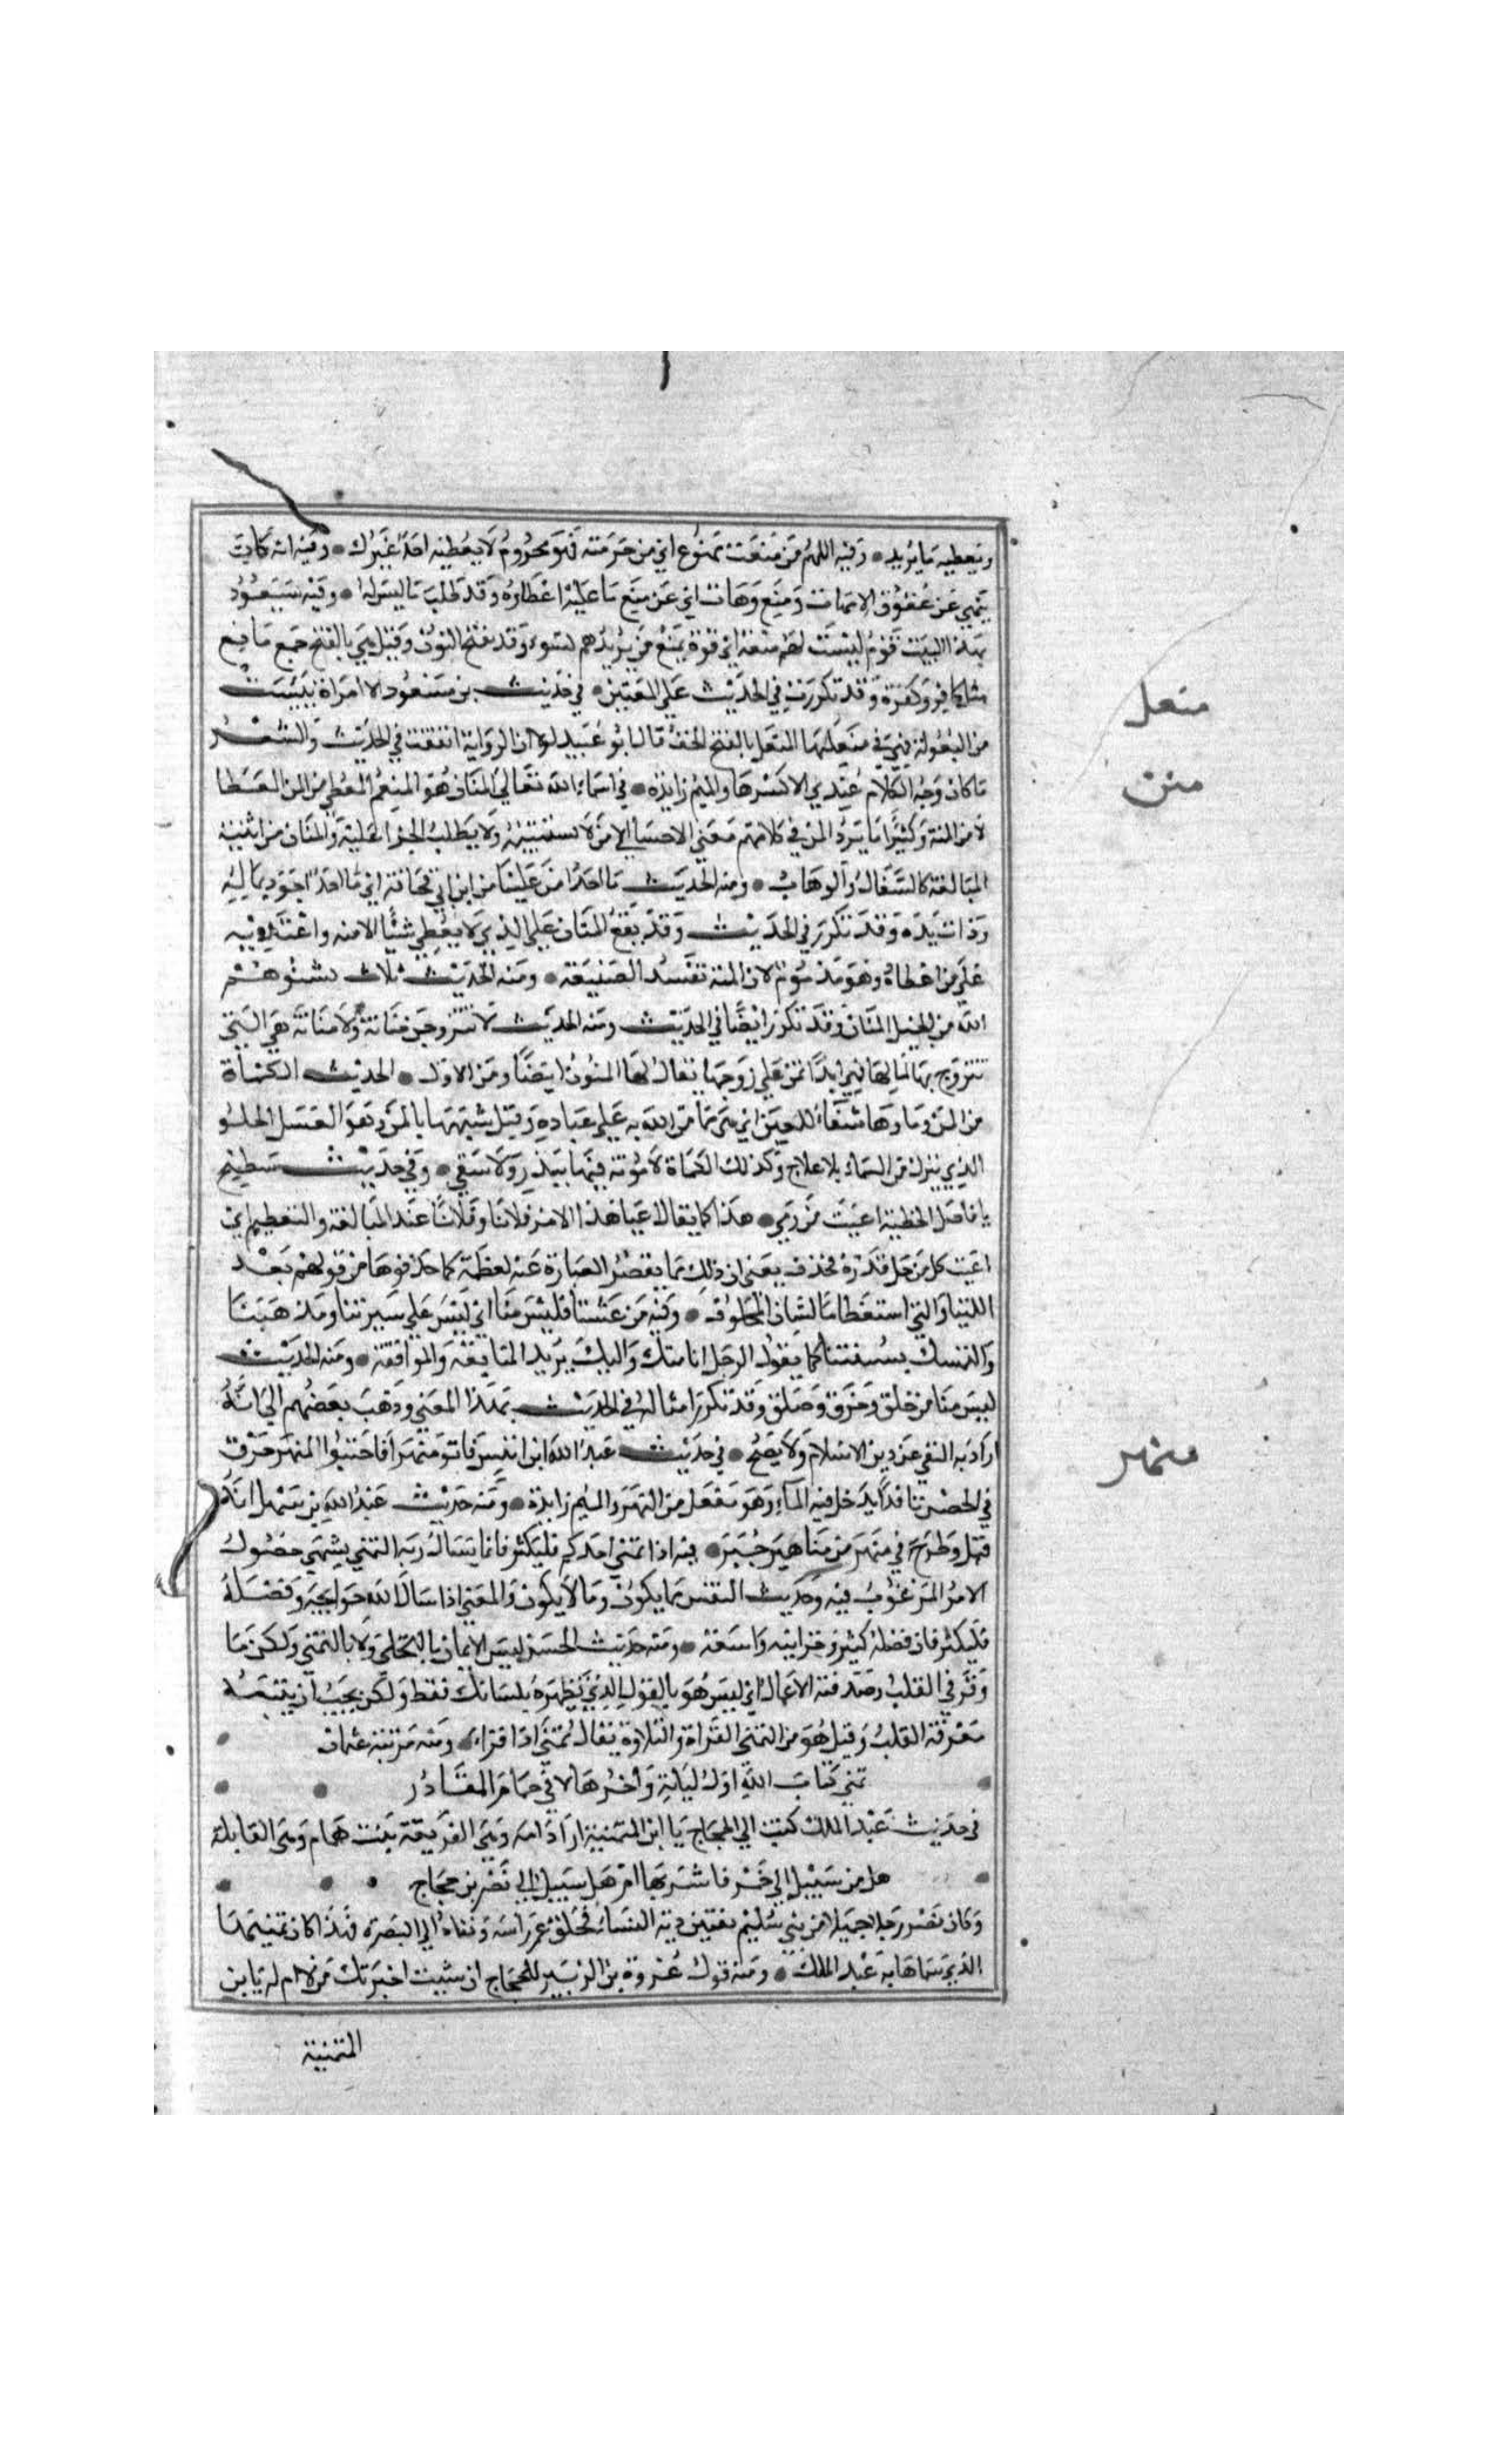 ويعطيه ما يريد • وفيه اللهم من منعت ممنوع اي من حرمته فهو محروم لا يعطيه احد غيرك • وفيه انه كان
ينهي عن عقوق الامهات ومنع وهات اي عن منع ما عليه اعطاؤه وقد طلب ما ليس له • وفيه سيعوذ
بهذا البيت قوم ليست لهم منعة اي قوة تمنع من يريدهم بسوء وقد تفتح النون وقيل هي بالفتح جمع مانع
مثل كافر وكفرة وقد تكررت في الحديث علي المعنيين • في حديث بن مسعود الا امراة يئست
من البعولة فهي في منعلها النعل بالفتح الخف قال ابو عبيد لولا ان الرواية اتفقت في الحديث والشعر
ما كان وجه الكلام عندي الا كسرها والميم زايدة • في اسماء الله تعالي المنان هو المنعم المعطي من المن العطا
لا من المنة وكثيرا ما يرد المن في كلامهم معني الاحسان الي من لا يستثيبه ولا يطلب الجزا عليه والمنان من ابنية
المبالغة كالسفاك والوهاب • ومنه الحديث ما احد امن علينا من ابن ابي قحافة اي ما احد اجود بماليه
وذات يده وقد تكرر في الحديث وقد يقع المنان علي الذي لا يعطي شيئا الا منه واعتد به
علي من اعطاه وهو مذموم لان المنة تفسد الصنيعة • ومنه الحديث ثلاث يشنوهم
الله من البخيل المنان وقد تكرر ايضا في الحديث ومنه الحديث لا تتزوجن حنانة ولا منانة هي التي
تتزوج بها لمالها فهي ابدا تمن علي زوجها يقال لها المنون ايضا ومن الاول • الحديث الكماة
من المن وماوها شفاء للعين اي هي مما من الله به علي عباده وقيل شبهها بالمن وهو العسل الحلو
الذي ينزل من السماء بلا علاج وكذلك الكماة لا مونة فيها ببذر ولا سقي • وفي حديث سطيح
يا فاصل الخطية اعيت من ومن • هذا كما يقال اعيا هذا الامر فلانا وفلانا عند المبالغة والتعظيم اي
اعيت كل من جل قدره فحذف يعني ان ذلك مما يقصر العبارة عنه لعظمه كما حذفوها من قولهم بعد
اللتيا والتي استعظاما لشان المخلوف • وفيه من غشنا فليس منا اي ليس علي سيرتنا ومذهبنا
والتمسك بسنتنا كما يقول الرجل انا منك واليك يريد المتابعة والموافقة • ومنه الحديث
ليس منا من حلق وخرق وصلق وقد تكرر امثاله في الحديث بهذا المعني وذهب بعضهم الي انه
اراد به النفي عن دين الاسلام ولا يصح • في حديث عبد الله ابن انيس فاتو منهرا فاختبوا المنهر خرق
في الحصن نافذ يدخل فيه الماء وهو مفعل من النهر والميم زايدة • ومنه حديث عبد الله بن سهل انه
قتل وطرح في منهر من مناهير خيبر • فيه اذا تمني احدكم فليكثر فانما يسال ربه التمني يشهي حصول
الامر المرغوب فيه وحديث النفس بما يكون وما لا يكون والمعني اذا سال الله حوايجه وفضله
فليكثر فان فضله كثير وخزاينه واسعة • ومنه حديث الحسن ليس الايمان بالتحلي ولا بالتمني ولكن ما
وقر في القلب وصدقته الاعمال اي ليس هو بالقول الذي تظهره بلسانك فقط ولكن يجب ان يتبعه
معرفة القلب وقيل هو من التمني القراة والتلاوة يقال تمني اذا قراء • ومنه مرثية عثمان
تمني كتاب الله اول ليلة واخرها لا في حمام المقادر
في حديث عبد الملك كتب الي الحجاج يا ابن المتمنية اراد امه وهي الفريعة بنت همام وهي القايلة
هل من سبيل الي خمر فاشربها ام هل سبيل الي نصر بن حجاج
وكان نصر رجلا جميلا من بني سليم يفتين به النساء فحلق عمر راسه ونفاه الي البصرة فهذا كان تمنيها
الذي سماها به عبد الملك • ومنه قول عروة بن الزبير للحجاج ان شئت اخبرتك من لا ام له يا بن
المتمنية
منعل
منن
منهر